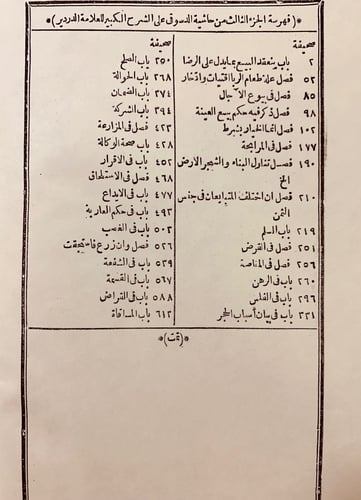 *(فهرسة الجزء الثالث من حاشية الدسوقى على الشرح الكبير للعلامة الدردير)*
صحيفة
٢ باب ينعقد البيع بما يدل على الرضا
٥٢ فصل علة طعام الربا اقتيات وادّخار
٨٥ فصل فى بيوع الآجال
٩٨ فصل ذكر فيه حكم بيع العينة
١٠٢ فصل انما الخيار بشرط
١٧٧ فصل فى المرابحة
١٩٠ فصل تناول البناء والشجر الارض
الخ
٢١٠ فصل ان اختلف المتبايعان فى جنس
الثمن
٢١٩ باب السلم
٢٥١ فصل فى القرض
٢٥٦ فصل فى المقاصة
٢٦٠ باب فى الرهن
٢٩٦ باب فى الفلس
٣٣١ باب فى بيان أسباب الحجر
صحيفة
٣٥٠ باب الصلح
٣٦٨ باب الحوالة
٣٧٤ باب الضمان
٣٩٤ باب الشركة
٤٢٣ فصل فى المزارعة
٤٢٨ باب صحة الوكالة
٤٥٢ باب فى الاقرار
٤٦٨ فصل فى الاستلحاق
٤٧٧ باب فى الايداع
٤٩٣ باب فى حكم العارية
٥٠٣ باب فى الغصب
٥٢٦ فصل وان زرع فاستحقت
٥٣٩ باب فى الشفعة
٥٦٧ باب فى القسمة
٥٨٨ باب فى القراض
٦١٢ باب المساقاة
*(تمت)*